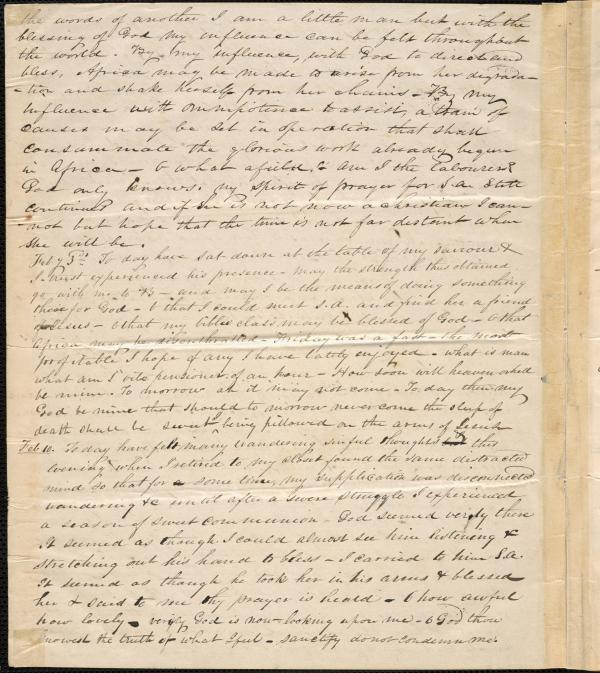 the words of another I am a little man but with the
blessing of God my influence can be felt throughout
the world. By my influence, with God to direct and
bless, Africa may be made to arise from her degrada-
-tion and shake herself from her chains - By my
influence with omnipotence to assist, a train of
causes may be set in operation that shall
consummate the glorious work already begun
in Africa - O what a field, & am I the labourer?
God only knows; my spirit of prayer for S.a. State
continues and if she is not now a christian I can-
-not but hope that the time is not far distant when
she will be.
Feby 5th To day have sat down at the table of my Saviour &
I trust experienced his presence - may the strength thus obtained
go with me to - and may I be the means of doing something
there for God - O that I could meet S.a. and find her a friend
of Jesus - O that my bible class may be blessed of God - O that
Africa may be disenthralled - Friday was a fast - the most
profitable I hope of any I have lately enjoyed - what is man
what am I vile pensioner of an hour - How soon will heaven
be mine. To morrow ah it may not come - To day then my
God be mine that should to morrow never come the sleep of
death shall be sweet being pillowed on the arms of Jesus
Feb 10. To day have felt many wandering sinful thoughts this
evening when I retired to my closet found the same distracted
mind so that for a some time, my supplication was disconnected
wandering &c until after a severe struggle I experienced
a season of sweet communion - God seemed verily there
It seemed as though I could almost see him listening &
stretching out his hand to bless - I carried to him S.a.
It seemed as though he took her in his arms & blessed
her & said to me thy prayer is heard - O how awful
how lovely - verily God is now looking upon me - O God thou
knowest the truth of what I feel - sanctify do not condemn me.